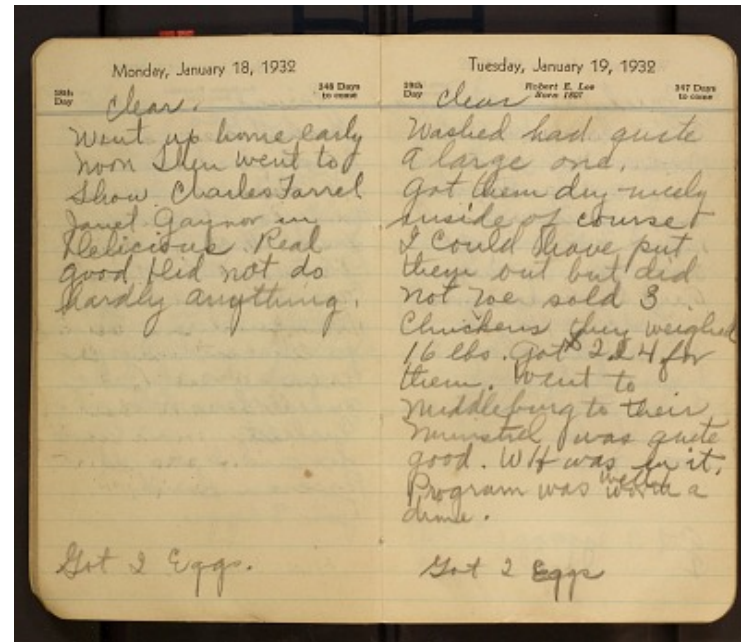 Monday, January 18, 1932
18th Day
348 Days to come
Clear.
Went up home early
noon then went to
Show. Charles Farrel
Janet Gaynor in
Delicious. Real
good. Did not do
hardly anything.
Got 2 Eggs.
Tuesday, January 19, 1932
19th Day
Robert E. Lee
Born 1807
347 Days to come
Clear
Washed had quite
a large one.
Got them dry nicely
inside of course
I could have put
them out but did
not. We sold 3
Chickens they weighed
16 lbs. Got 2.24 for
them. Went to
Middleburg to their
Minstrel was quite
good. WH was in it.
Program was well worth a
dime.
Got 2 Eggs